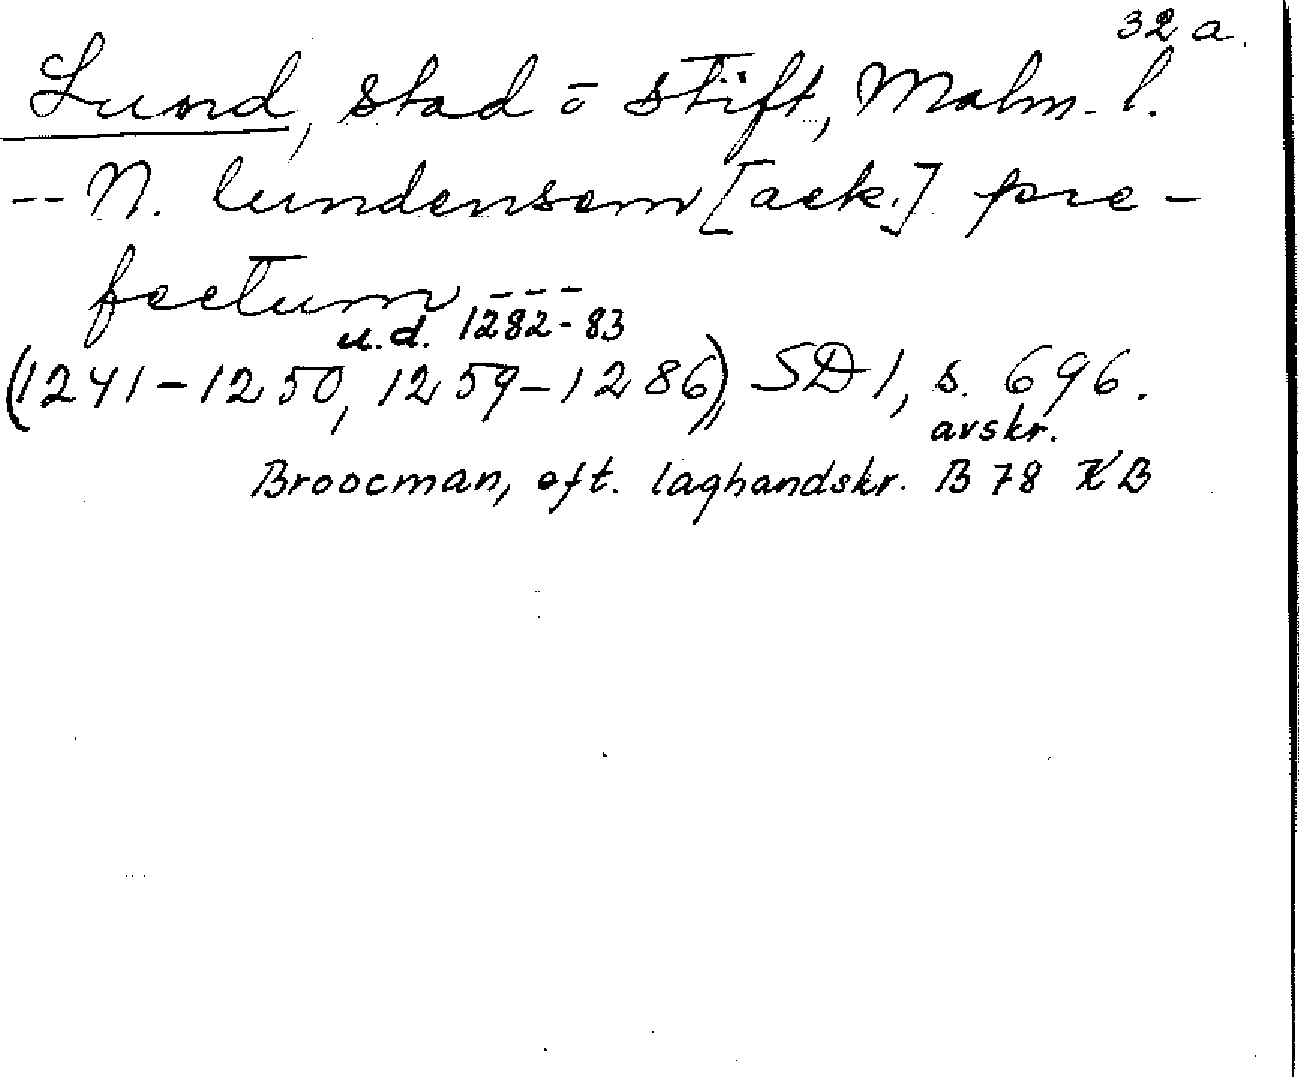 32 a.
Lund, stad o stift, Malm. l.
-- N. lundensem [ack.] pre-
fectum ---
u.d. 1282-83
(1241-1250, 1259-1286), SD 1, s. 696.
avskr.
Broocman, eft. laghandskr. B 78 KB